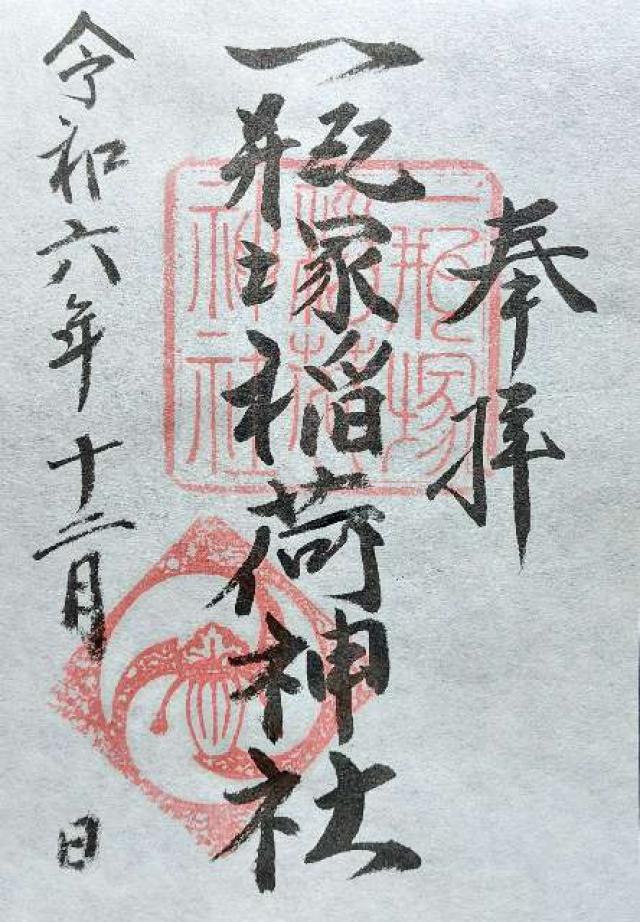 奉拝
一瓶塚稲荷神社
令和六年十二月 日
一瓶塚
稲荷
神社